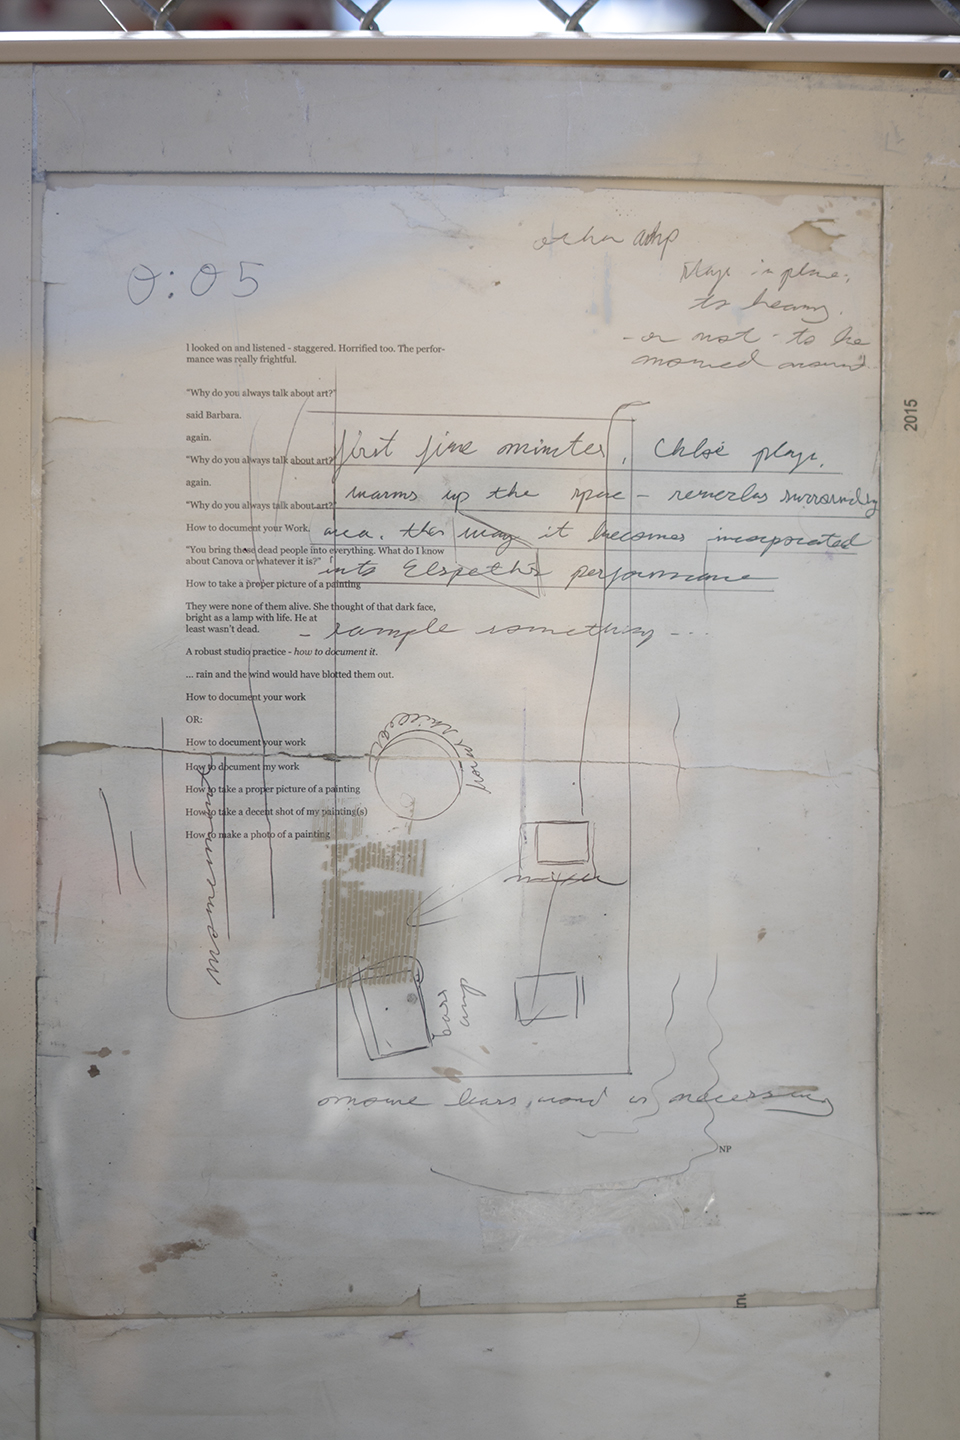 other amp
0:05
plays in place,
to heavy.
- or not - to be
moved around
I looked on and listened - staggered. Horrified too. The perfor-
mance was really frightful.
"Why do you always talk about art?"
said Barbara.
again.
"Why do you always talk about art?"
again.
"Why do you always talk about art?"
How to document your Work.
"You bring those dead people into everything. What do I know
about Canova or whatever it is?"
How to take a proper picture of a painting
They were none of them alive. She thought of that dark face,
bright as a lamp with life. He at
least wasn't dead.
A robust studio practice - how to document it.
... rain and the wind would have blotted them out.
How to document your work
OR:
How to document your work
How to document my work
How to take a proper picture of a painting
How to take a decent shot of my painting(s)
How to make a photo of a painting
2015
first five minutes, Chloé plays,
warms up the space - reverbs surrounding
area. this way it becomes incorporated
into Elspeth's performance
- sample something - ...
mixer
bass
amp
is necessary
NP